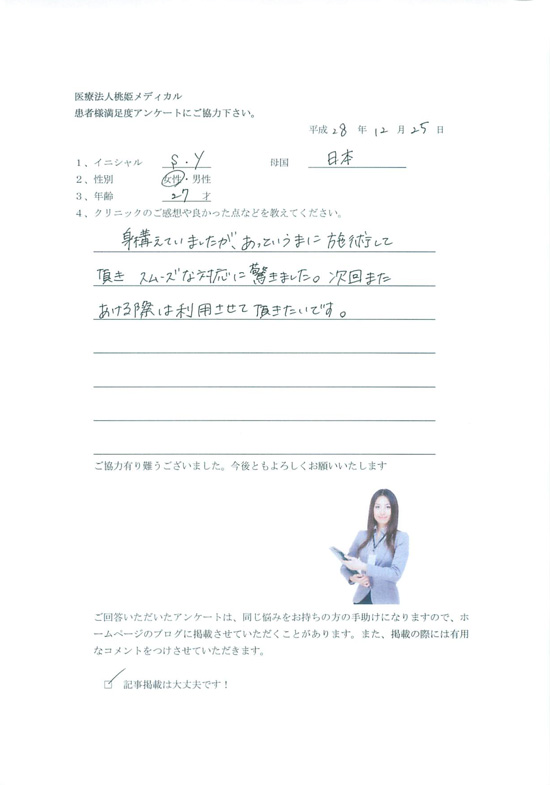 医療法人桃姫メディカル
患者様満足度アンケートにご協力下さい。
平成 28 年 12 月 25 日
1、イニシャル S.Y 母国 日本
2、性別 女性・男性
3、年齢 27 才
4、クリニックのご感想や良かった点などを教えてください。
身構えていましたが、あっというまに 施術して
頂き スムーズな対応に驚きました。次回また
あける際は利用させて頂きたいです。
ご協力有り難うございました。今後ともよろしくお願いいたします
ご回答いただいたアンケートは、同じ悩みをお持ちの方の手助けになりますので、ホ
ームページのブログに掲載させていただくことがあります。また、掲載の際には有用
なコメントをつけさせていただきます。
☑ 記事掲載は大丈夫です！